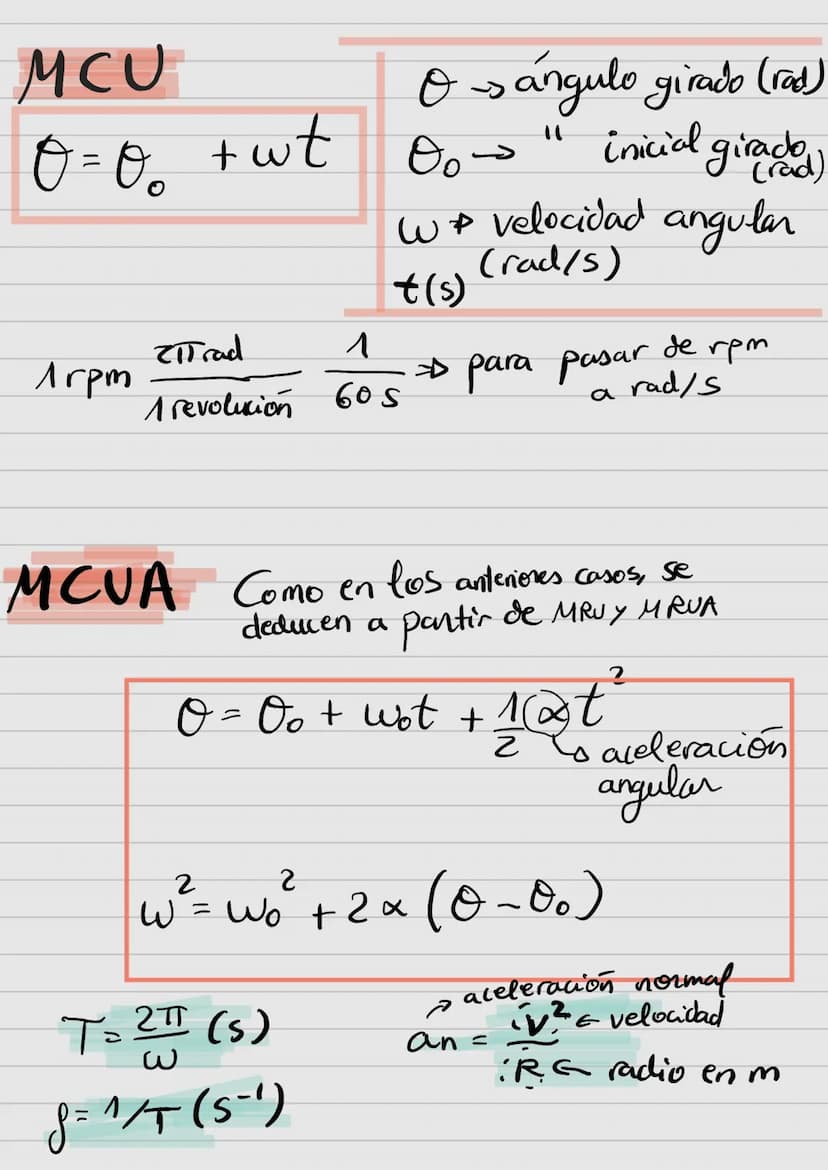 MCU
θ = θ₀ + ωt
θ → ángulo girado (rad)
θ₀ → " inicial girado (rad)
ω → velocidad angular
(rad/s)
t(s)
1 rpm 2π rad / 1 revolución 1 / 60 s ⇒ para pasar de rpm
a rad/s
MCUA
Como en los anteriores casos, se
deducen a partir de MRU y MRUA
θ = θ₀ + ω₀t + 1/2 α t²
↳ aceleración
angular
ω² = ω₀² + 2α (θ - θ₀)
T = 2π/ω (s)
f = 1/T (s⁻¹)
↗ aceleración normal
an = v² ← velocidad
R ← radio en m